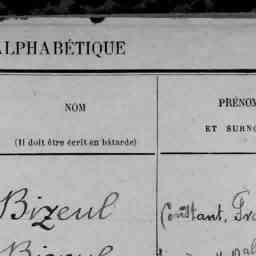 ALPHABÉTIQUE
NOM
PRÉNOM
(Il doit être écrit en bâtarde)
ET SURNO
Bizeul
Constant, Fra
Bizeul